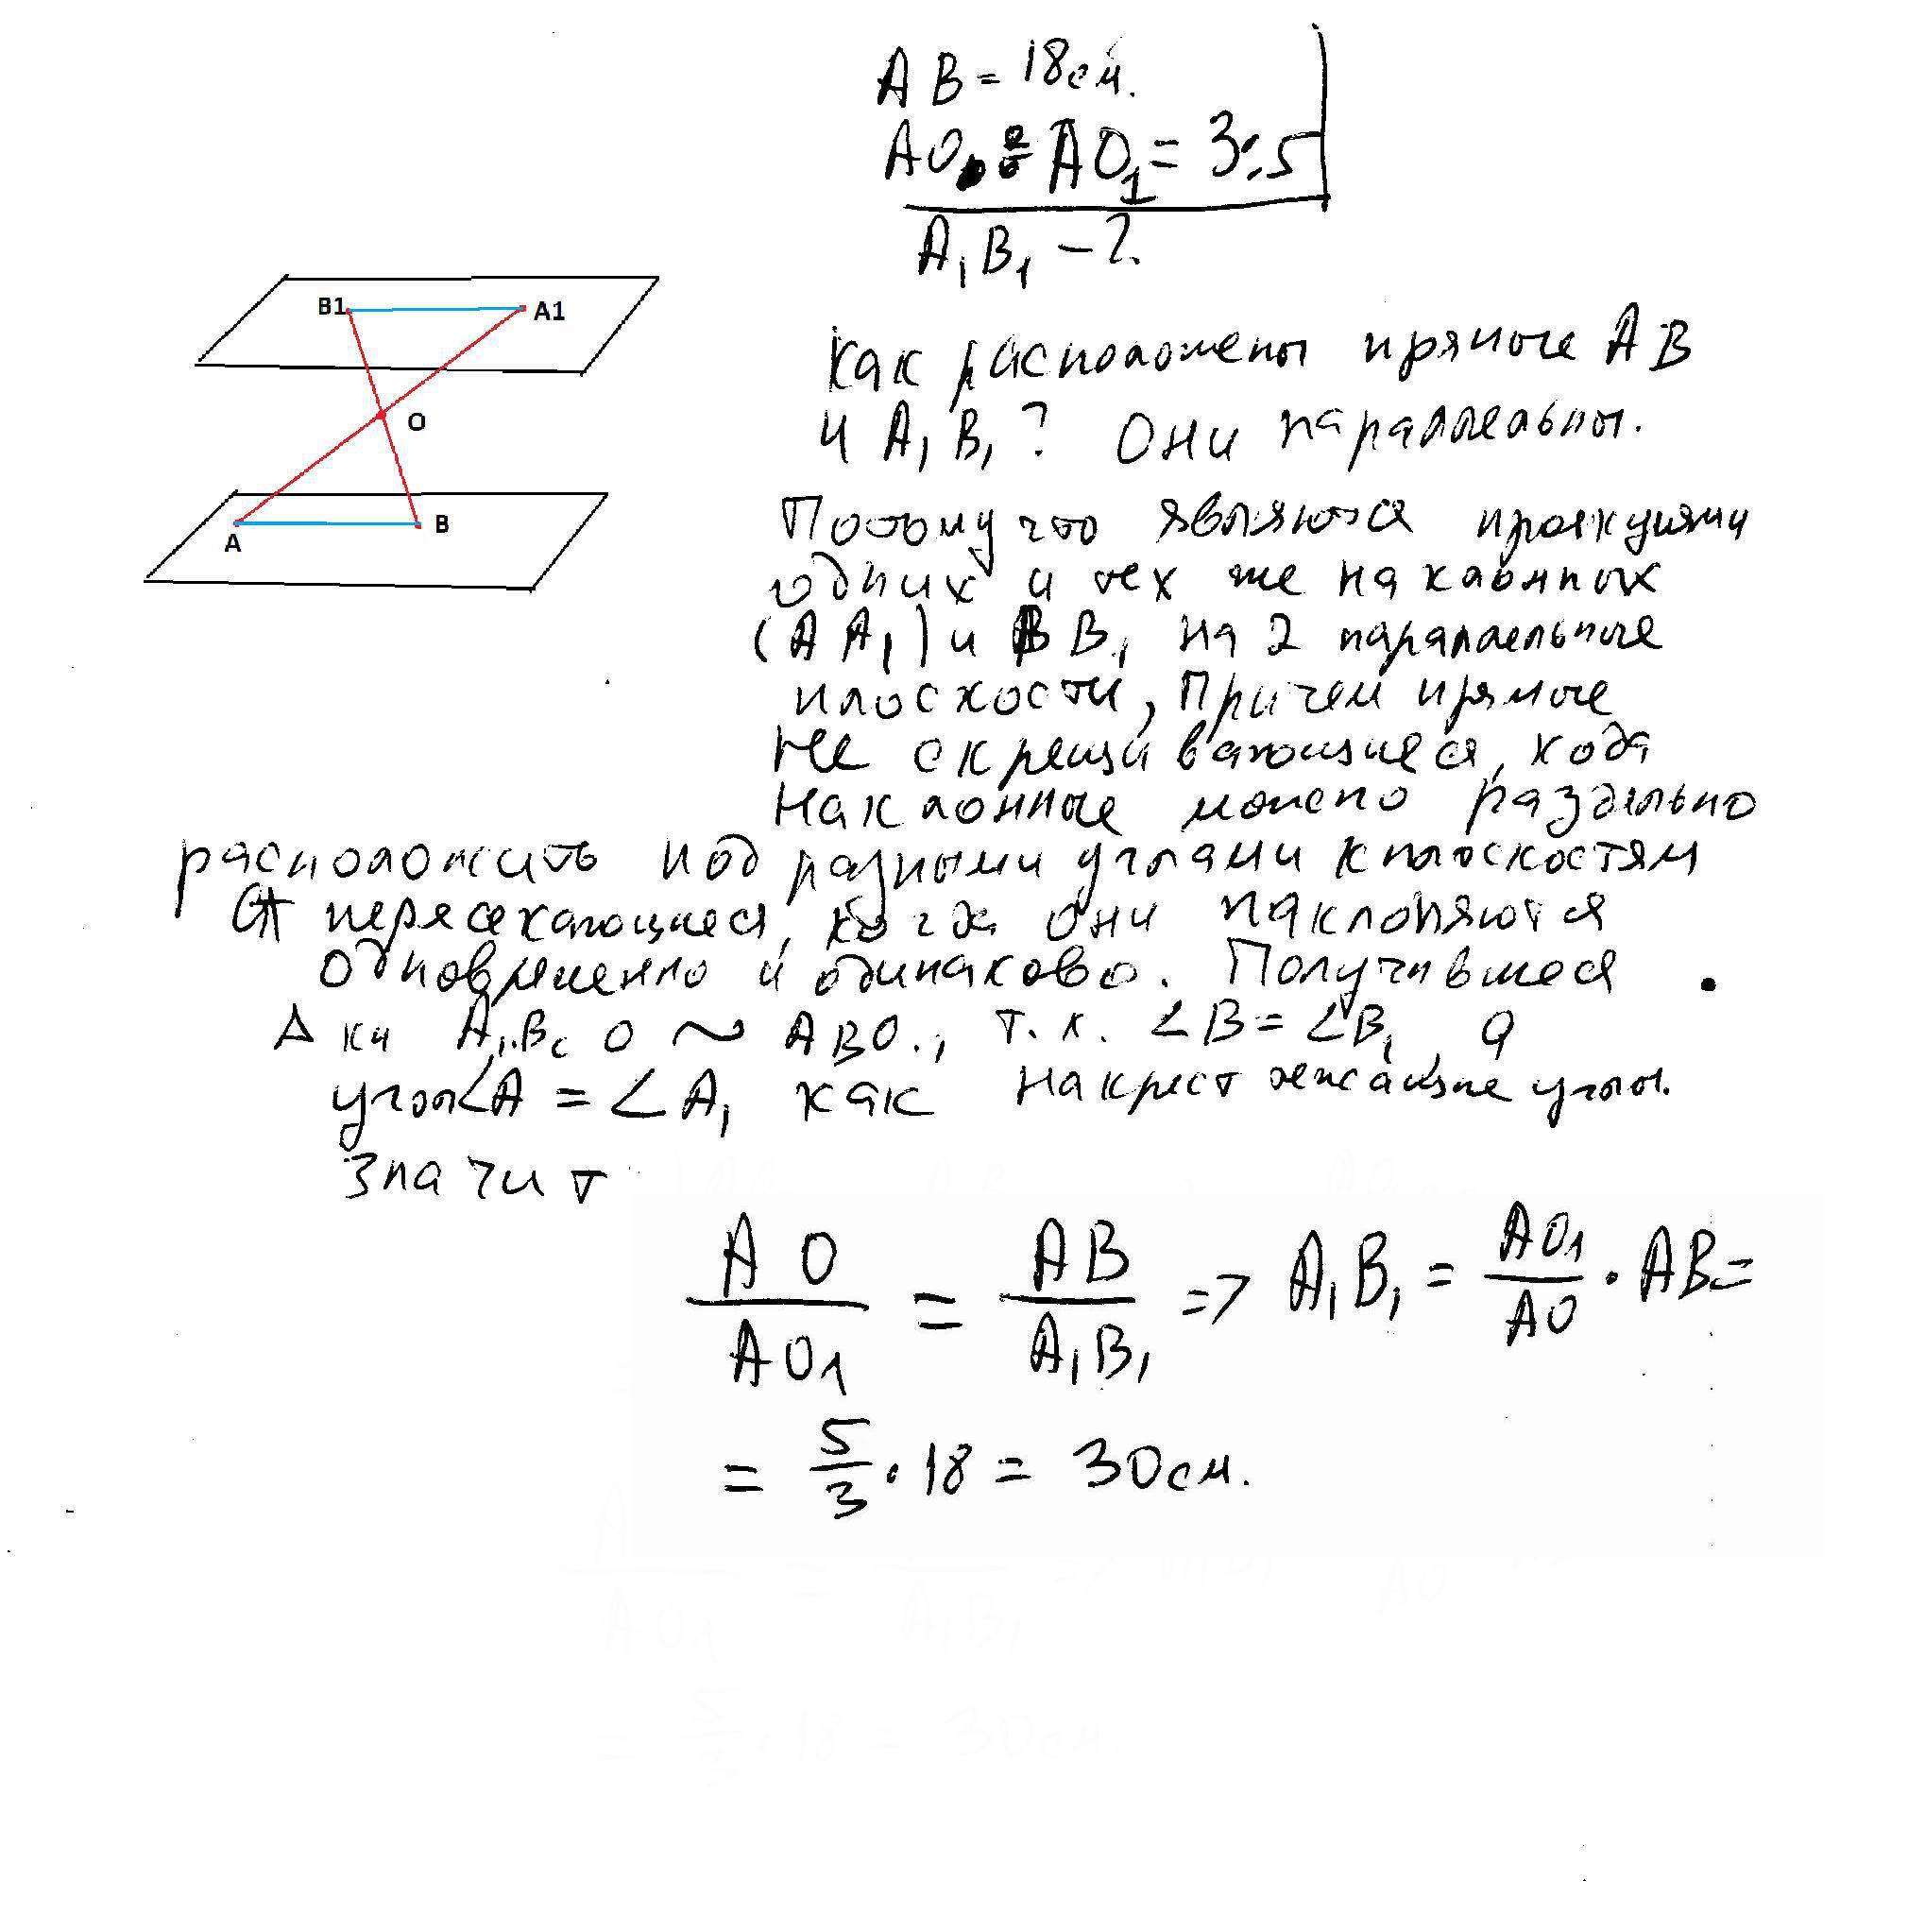 AB = 18см.
AO : AO₁ = 3:5
A₁B₁ - ?
B1
A1
O
A
B
Как расположены прямые AB
и A₁B₁? Они параллельны.
Потому что являются проекциями
одних и тех же наклонных
(AA₁) и BB₁ на 2 параллельные
плоскости, Причем прямые
не скрещивающиеся, когда
наклонные можно раздельно
расположить под разными углами к плоскостям
А пересекающиеся, когда они наклоняются
одновременно и одинаково. Получившиеся
Δ ки A₁B₁O ~ ABO., т.к. ∠B = ∠B₁, а
угол ∠A = ∠A₁ как накрест лежащие углы.
Значит
AO/AO₁ = AB/A₁B₁ => A₁B₁ = AO₁/AO · AB =
= 5/3 · 18 = 30см.